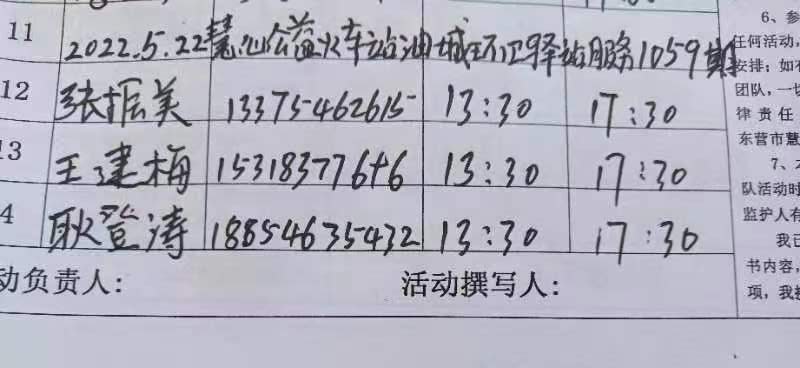 17:30
11 2022.5.22慧心公益火车站油城环卫驿站服务1059期
12 张振美 13375462615 13:30 17:30
13 王建梅 15318377646 13:30 17:30
4 耿登涛 18854635432 13:30 17:30
动负责人: 活动撰写人:
6、参
任何活动,
安排;如有
团队,一切
律责任
东营市慧
7、
队活动时
监护人有
我已
书内容,
项,我